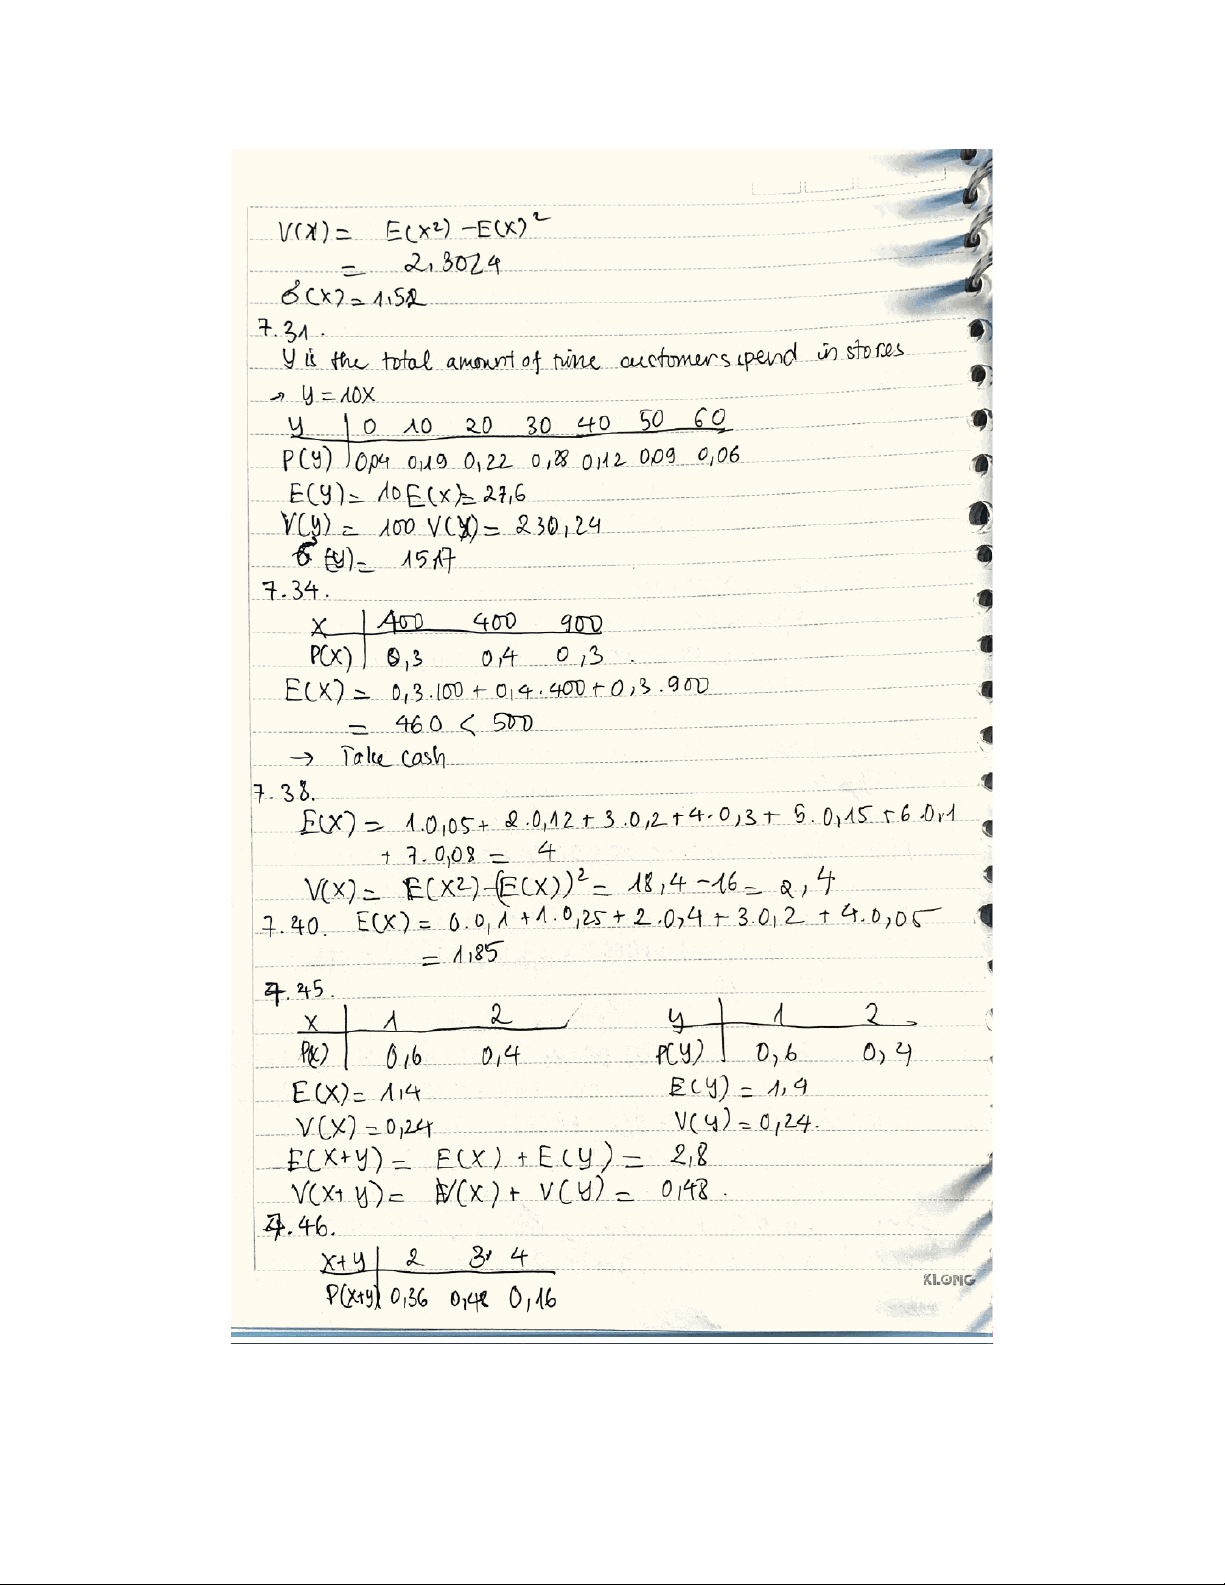 V(X) = E(X²) - E(X)²
= 2,3024
σ(X) = 1.52
7.31.
Y is the total amount of time customers spend in stores
→ Y = 10X
Y 0 10 20 30 40 50 60
P(Y) 0,04 0,19 0,22 0,28 0,12 0,09 0,06
E(Y) = 10E(X) = 27,6
V(Y) = 100 V(X) = 230,24
σ(Y) = 15,17
7.34.
X 100 400 900
P(X) 0,3 0,4 0,3.
E(X) = 0,3.100 + 0,4.400 + 0,3.900
= 460 < 500
→ Take cash
7.38.
E(X) = 1.0,05 + 2.0,12 + 3.0,2 + 4.0,3 + 5.0,15 + 6.0,1
+ 7.0,08 = 4
V(X) = E(X²) - (E(X))² = 18,4 - 16 = 2,4
7.40. E(X) = 0.0,1 + 1.0,25 + 2.0,4 + 3.0,2 + 4.0,05
= 1,85
7.45.
X 1 2 Y 1 2
P(X) 0,6 0,4 P(Y) 0,6 0,4
E(X) = 1,4 E(Y) = 1,4
V(X) = 0,24 V(Y) = 0,24.
E(X+Y) = E(X) + E(Y) = 2,8
V(X+Y) = V(X) + V(Y) = 0,48.
7.46.
X+Y 2 3 4
P(X+Y) 0,36 0,48 0,16
KLONG